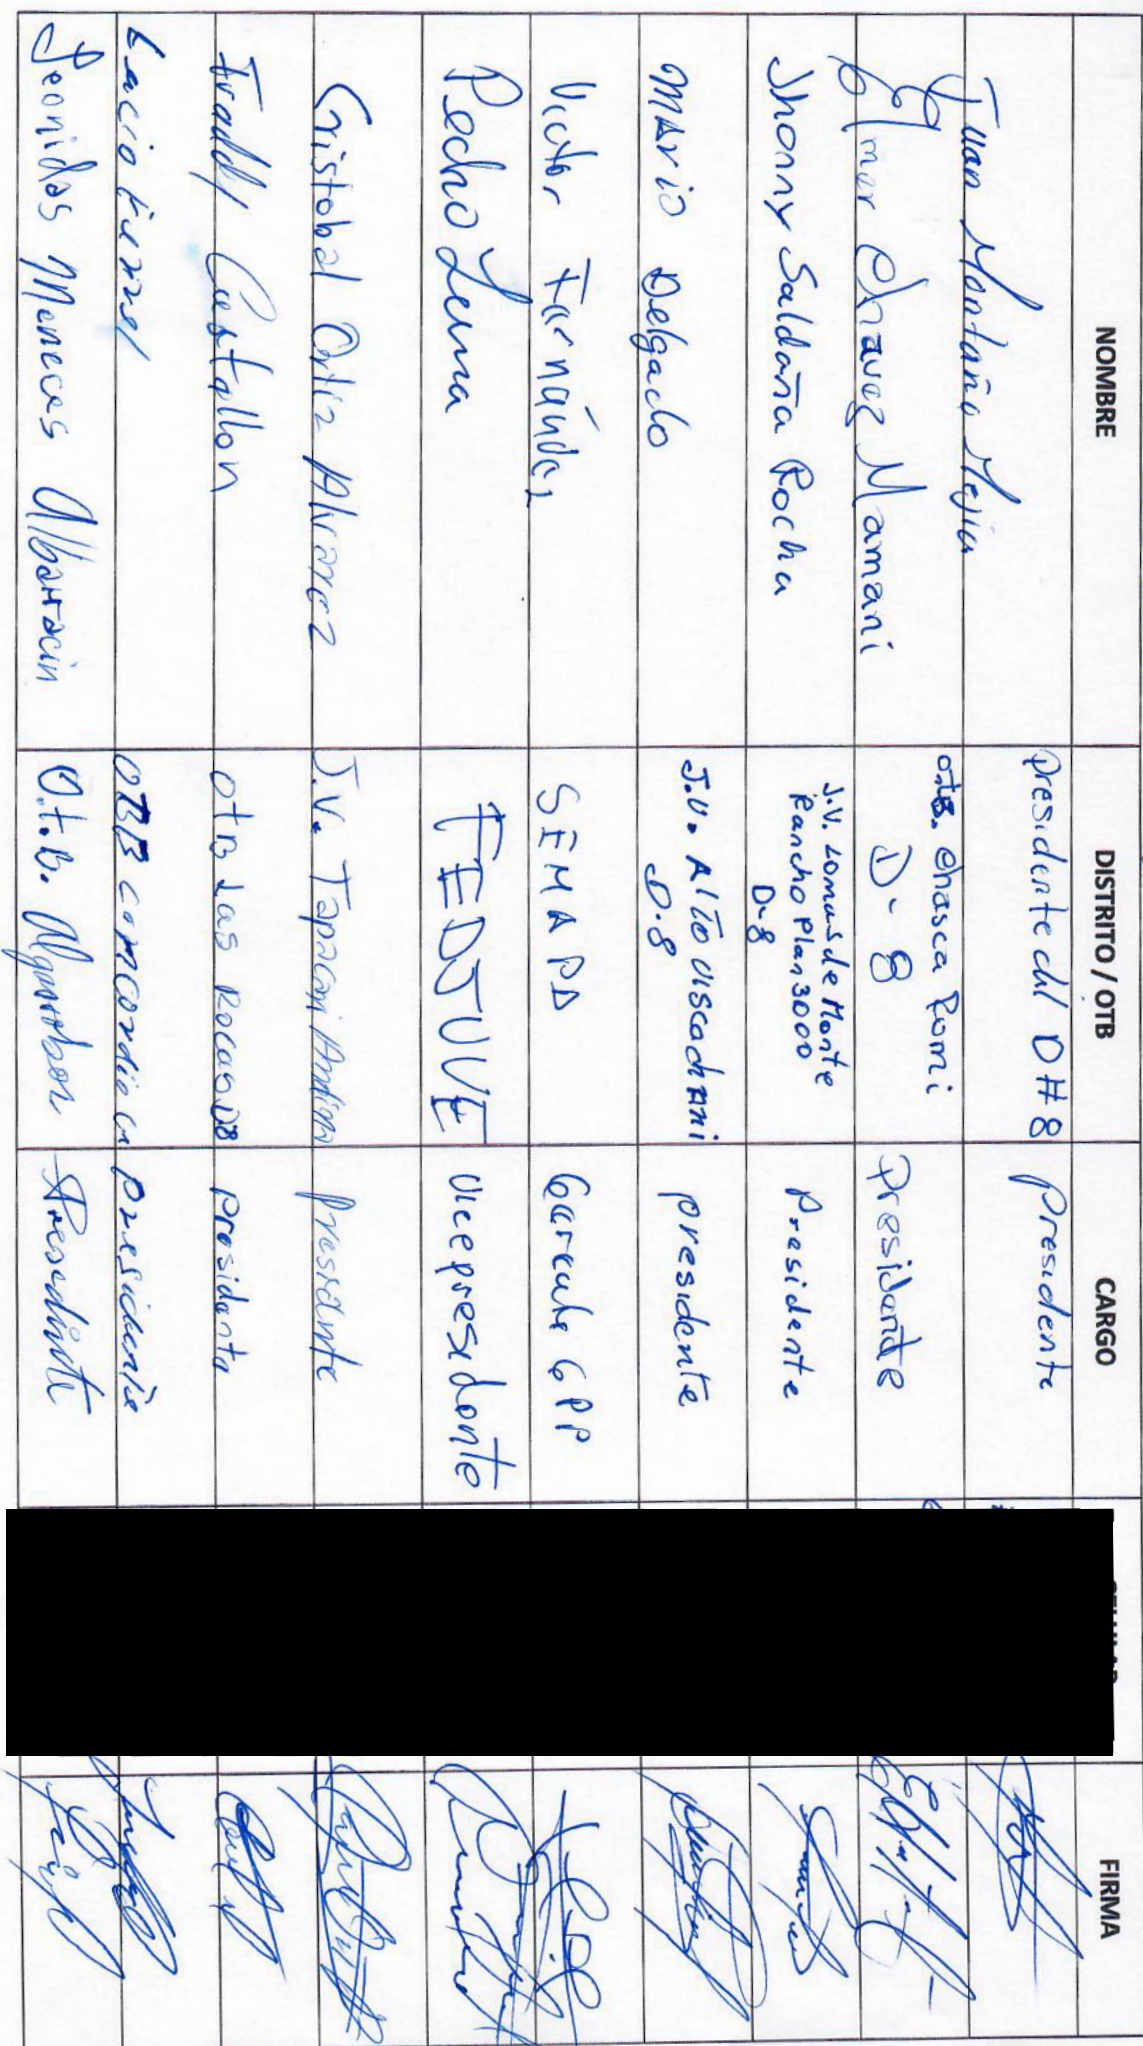 NOMBRE DISTRITO / OTB CARGO FIRMA
Juan Montaño Mejia Presidente del DH8 Presidente
Elmer Chavez Mamani O.T.B. Chasca Rumi
D-8 Presidente
Jhonny Saldaña Rocha J.V. Lomas de Monte
Rancho Plan 3000
D-8 Presidente
Mario Delgado J.V. Alto Viscachani
D-8 presidente
Victor Fernández SEMAPA Gerente GPP
Pedro Lema FEDJUVE Vicepresidente
Cristobal Ortiz J.V. Presidente
Freddy Castellon OTB Las Rocas D8 Presidente
OTB concordia presidente
Leonidas Meneces Albarracin O.T.B. Presidente